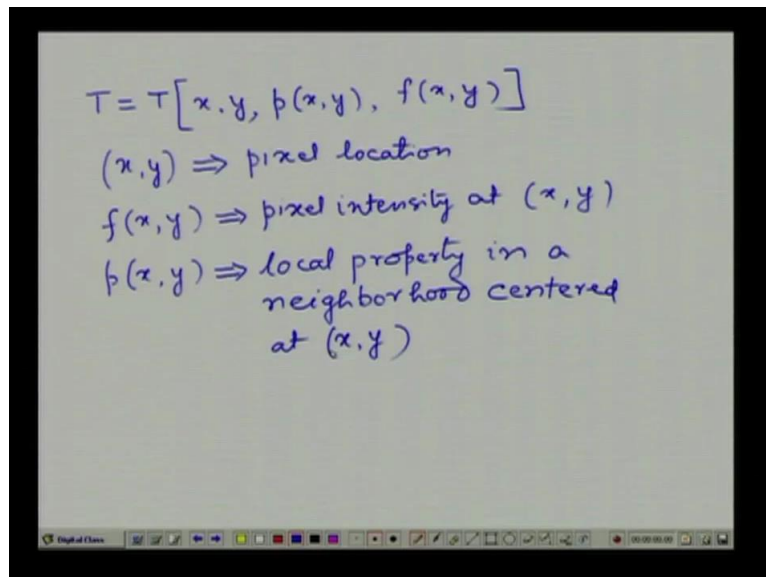 T = T[x.y, p(x,y), f(x,y)]
(x,y) ⇒ pixel location
f(x,y) ⇒ pixel intensity at (x,y)
p(x,y) ⇒ local property in a
neighborhood centered
at (x,y)
Digital Class 00:00:00:00